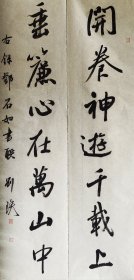 開卷神遊千載上
垂簾心在萬山中
右錄鄧石如書聯